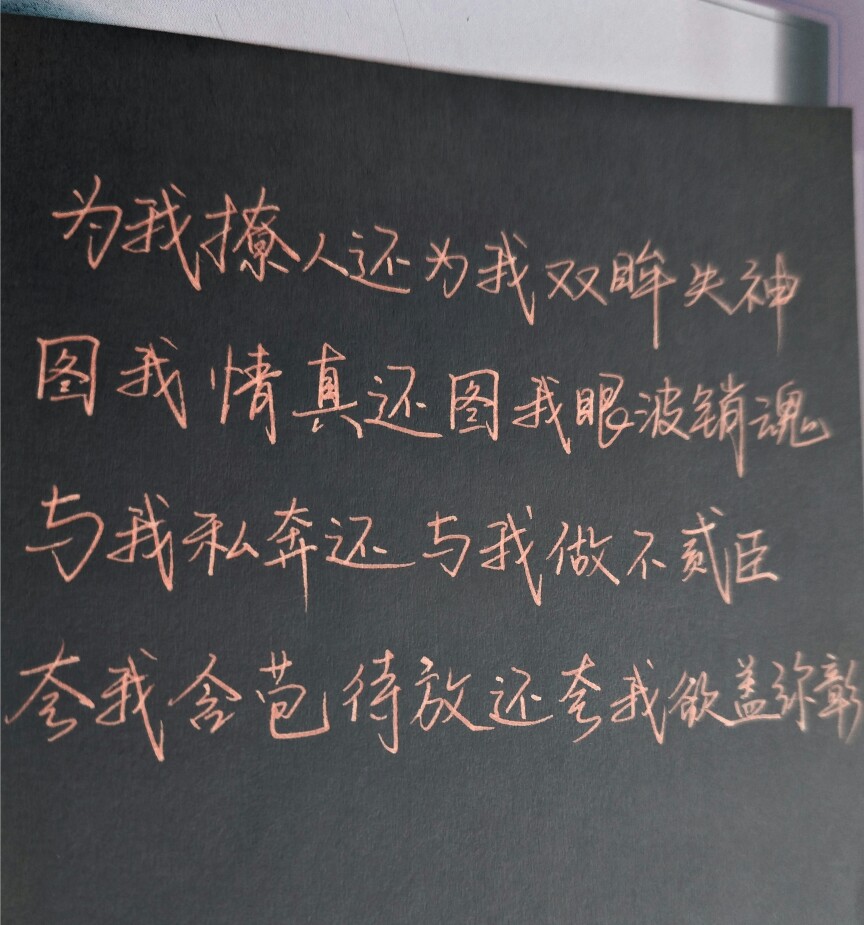 为我撩人还为我双眸失神
图我情真还图我眼波销魂
与我私奔还与我做不贰臣
夸我含苞待放还夸我欲盖弥彰